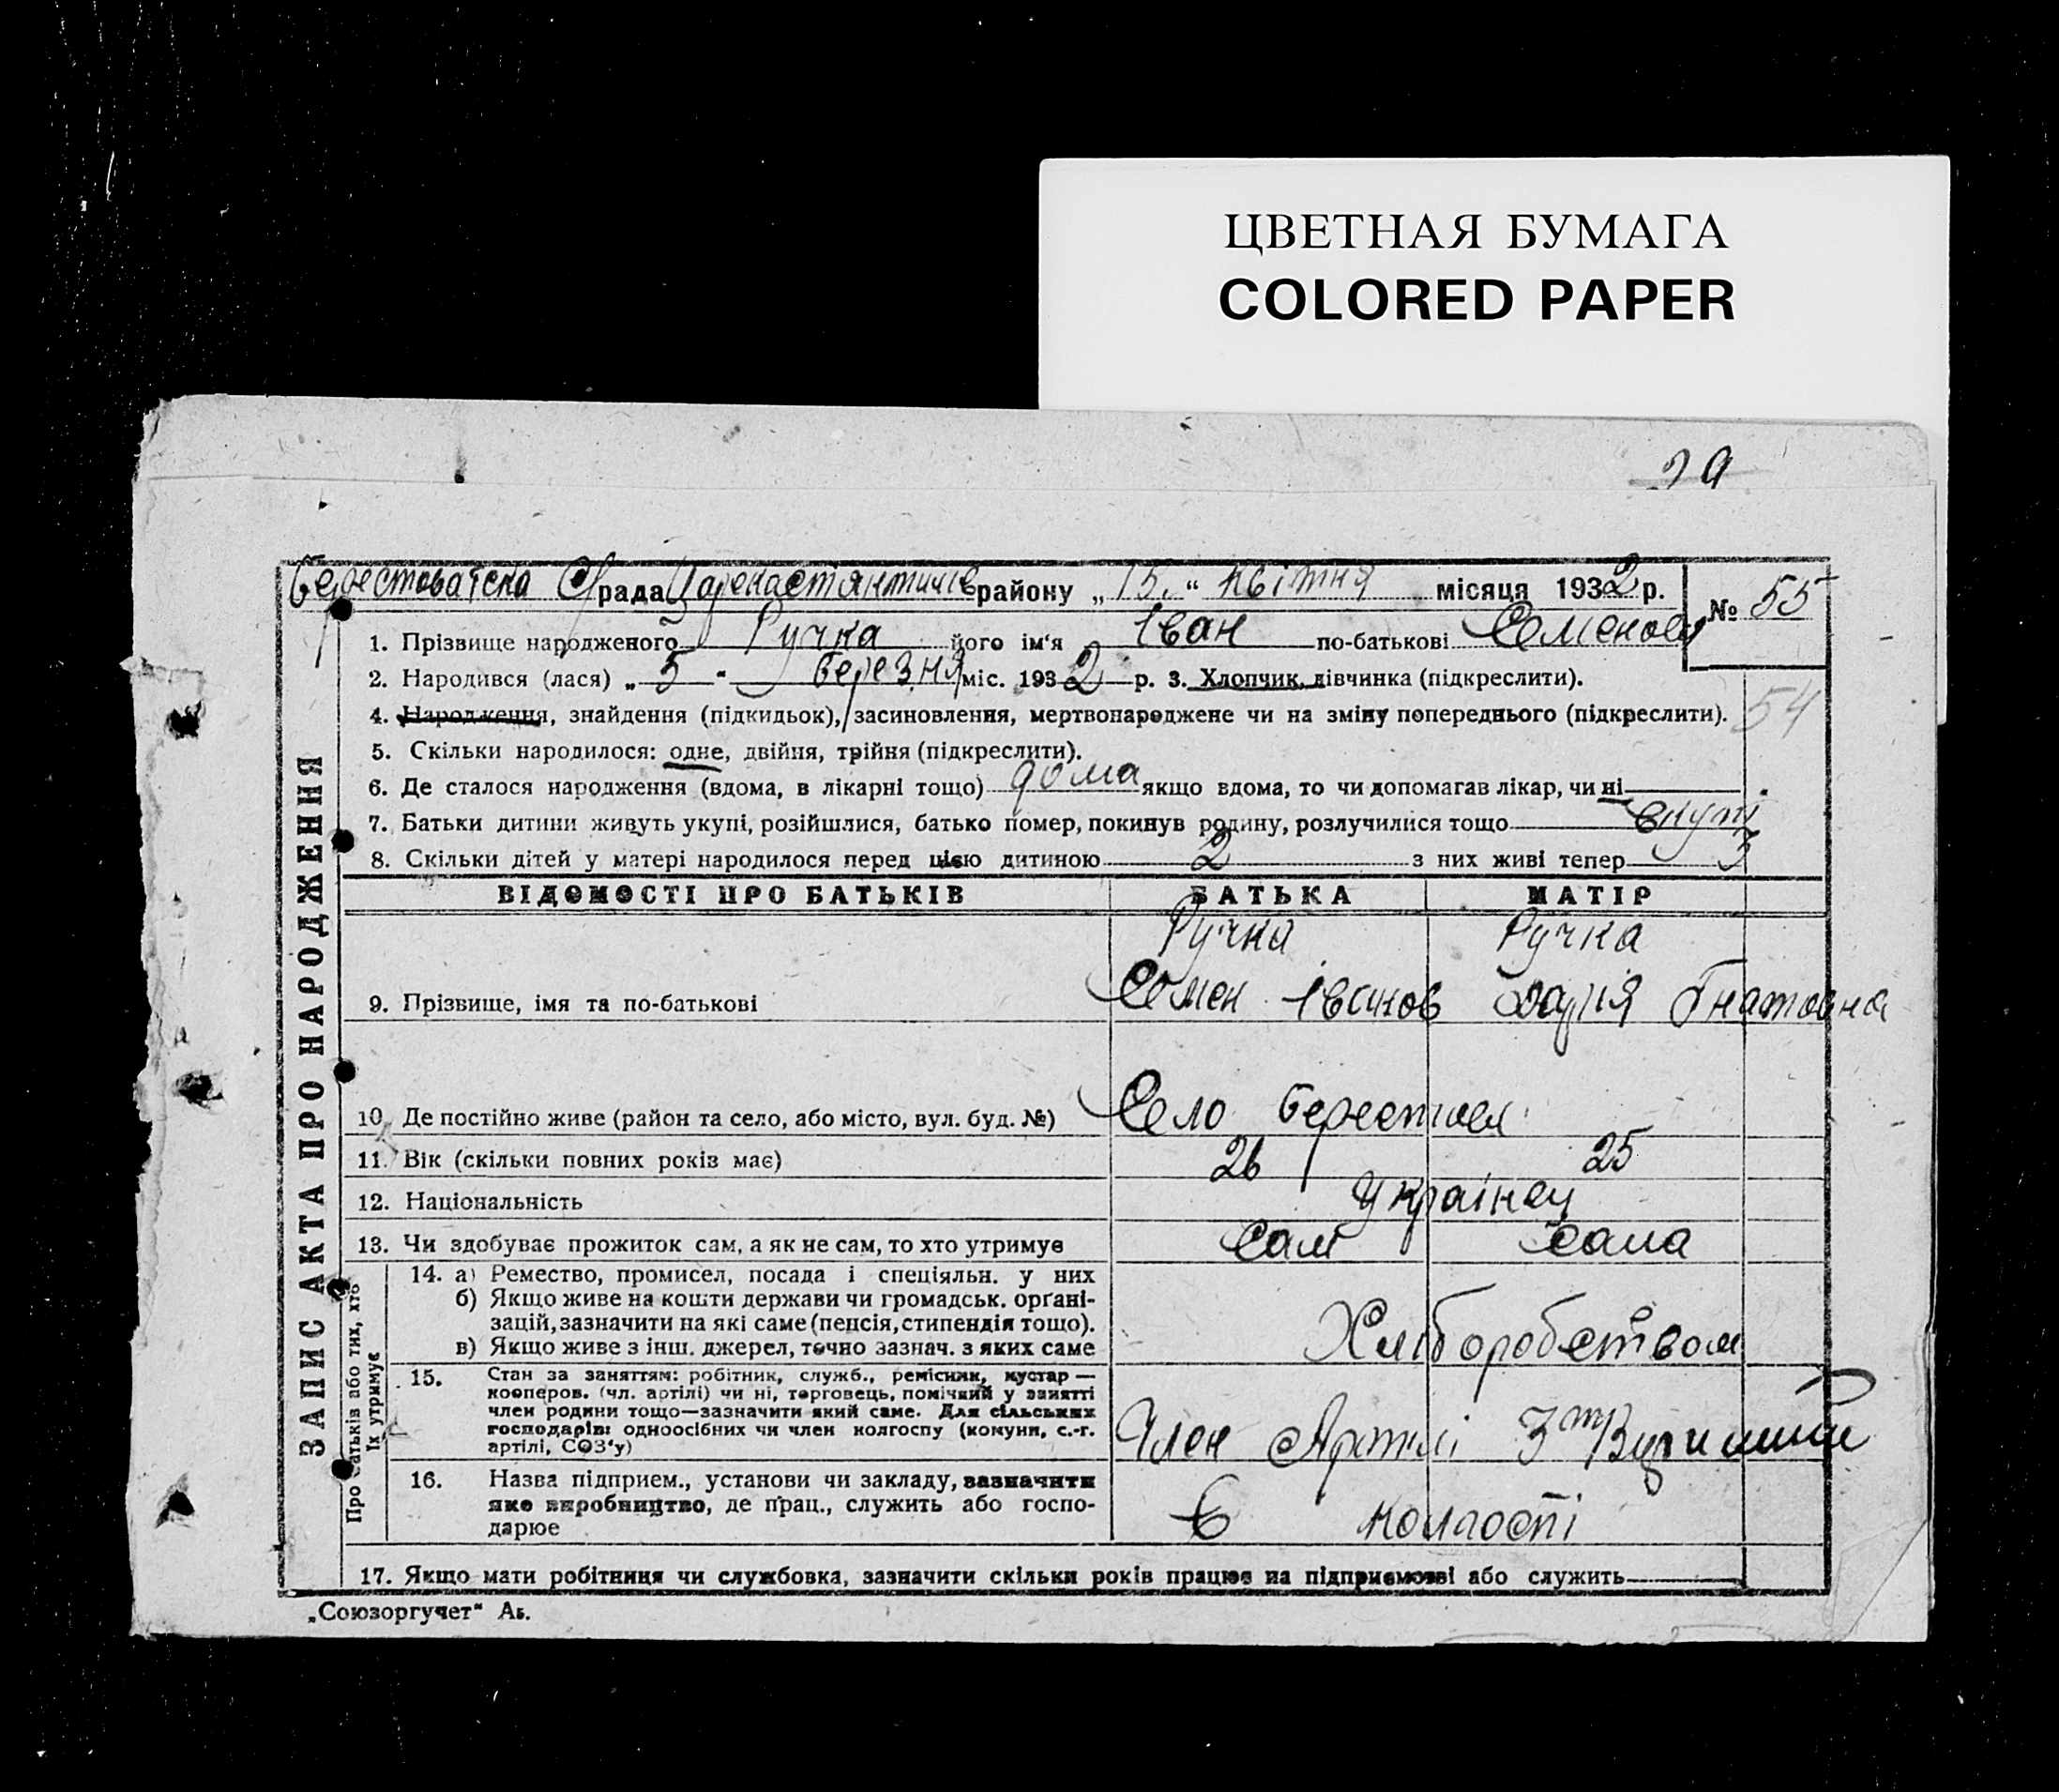 ЦВЕТНАЯ БУМАГА
COLORED PAPER
Берестоватська С/рада районy „15“ квітня місяця 1932 р. № 55
1. Прізвище народженого Ручка його ім‘я Іван по-батькові Семенов
2. Народився (лася) „5“ березня міс. 1932 р. 3. Хлопчик, дівчинка (підкреслити).
54
4. Народження, знайдення (підкидьок), засиновлення, мертвонароджене чи на зміну попереднього (підкреслити).
5. Скільки народилося: одне, двійня, трійня (підкреслити).
6. Де сталося народження (вдома, в лікарні тощо) дома якщо вдома, то чи допомагав лікар, чи ні
7. Батьки дитини живуть укупі, розійшлися, батько помер, покинув родину, розлучилися тощо вкупі
8. Скільки дітей у матері народилося перед цією дитиною 2 з них живі тепер 3
ВІДОМОСТІ ПРО БАТЬКІВ БАТЬКА МАТІР
Ручка Ручка
9. Прізвище, імя та по-батькові Семен Іванов Дарія Гнатовна
10. Де постійно живе (район та село, або місто, вул. буд. №) Село
11. Вік (скільки повних років має) 26 25
12. Національність Українец
13. Чи здобуває прожиток сам, а як не сам, то хто утримує Сам Сама
14. а) Ремество, промисел, посада і спеціяльн. у них
б) Якщо живе на кошти держави чи громадськ. орґані-
зацій, зазначити на які саме (пенсія, стипендія тощо).
в) Якщо живе з інш. джерел, точно зазнач. з яких саме Хліборобством
15. Стан за заняттям: робітник, служб., ремісник, кустар —
кооперов. (чл. артілі) чи ні, торговець, помічний у занятті
член родини тощо—зазначити який саме. Для сільських
господарів: одноосібних чи член колгоспу (комуни, с.-г.
артілі, СОЗ‘у) Член Артілі
16. Назва підприєм., установи чи закладу, зазначити
яке виробництво, де прац., служить або госпо-
дарює В колгоспі
17. Якщо мати робітниця чи службовка, зазначити скільки років працює на підприємстві або служить
ЗАПИС АКТА ПРО НАРОДЖЕННЯ
Про батьків або тих, хто
їх утримує
„Союзоргучет“